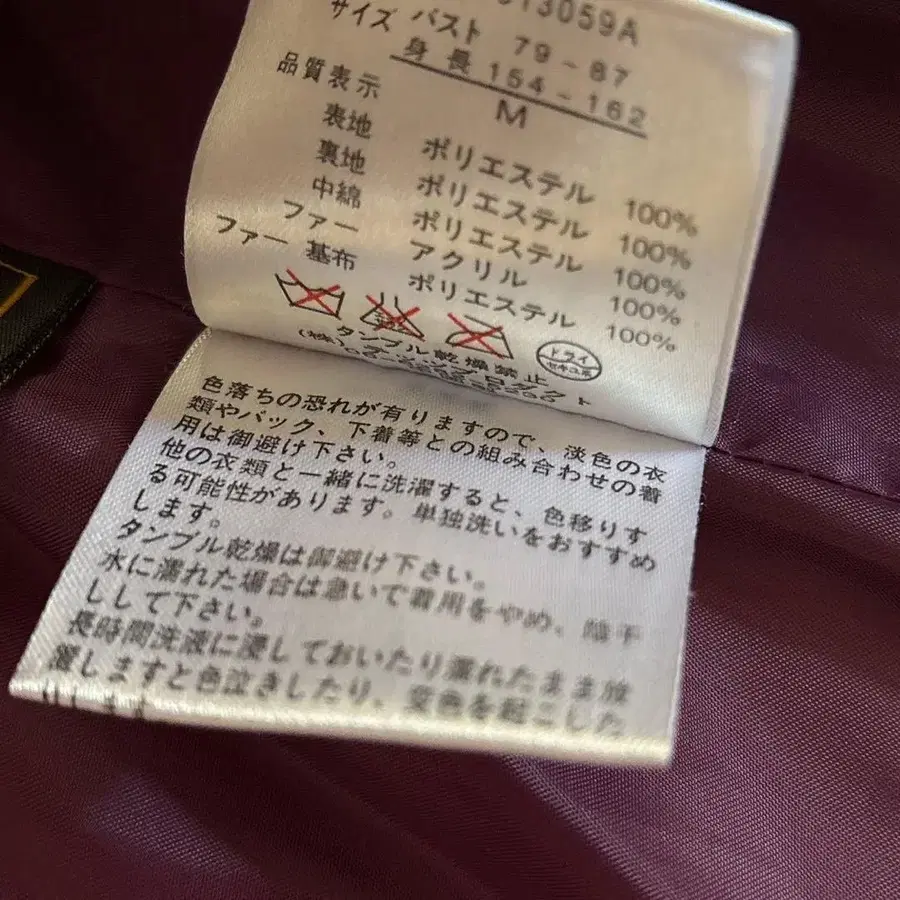 13059A
サイズ バスト 79-87
身長 154-162
M
品質表示
表地 ポリエステル 100%
裏地 ポリエステル 100%
中綿 ポリエステル 100%
ファー アクリル 100%
ファー 基布 ポリエステル 100%
ドライ
セキユ系
タンブル乾燥禁止
(株)
色落ちの恐れが有りますので、淡色の衣
類やバック、下着等との組み合わせの着
用は御避け下さい。
他の衣類と一緒に洗濯すると、色移りす
る可能性があります。単独洗いをおすすめ
します。
タンブル乾燥は御避け下さい。
水に濡れた場合は急いで着用をやめ、陰干
しして下さい。
長時間洗液に浸しておいたり濡れたまま放
置しますと色泣きしたり、変色を起こした